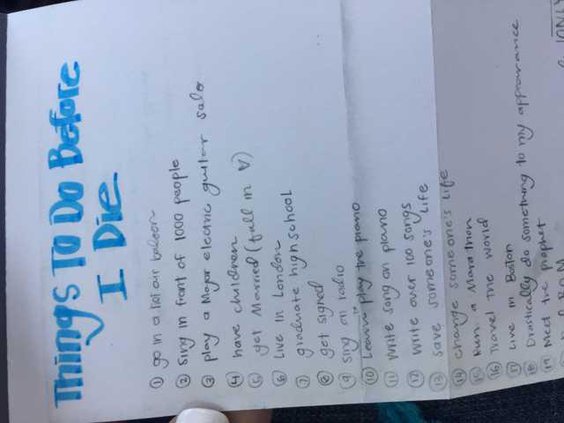 Things To Do Before
I Die
① go in a hot air baloon
② sing in front of 1000 people
③ play a Major electric guitar solo
④ have children
⑤ get Married (fall in V)
⑥ Live In London
⑦ graduate high school
⑧ get signed
⑨ sing on radio
⑩ Learn play the piano
⑪ write song on piano
⑫ write over 100 songs
⑬ save someone's life
⑭ change someone's life
⑮ Run a Marathon
⑯ Travel the world
⑰ Live in Boston
⑱ Drastically do something to my appearance
⑲ Meet the prophet